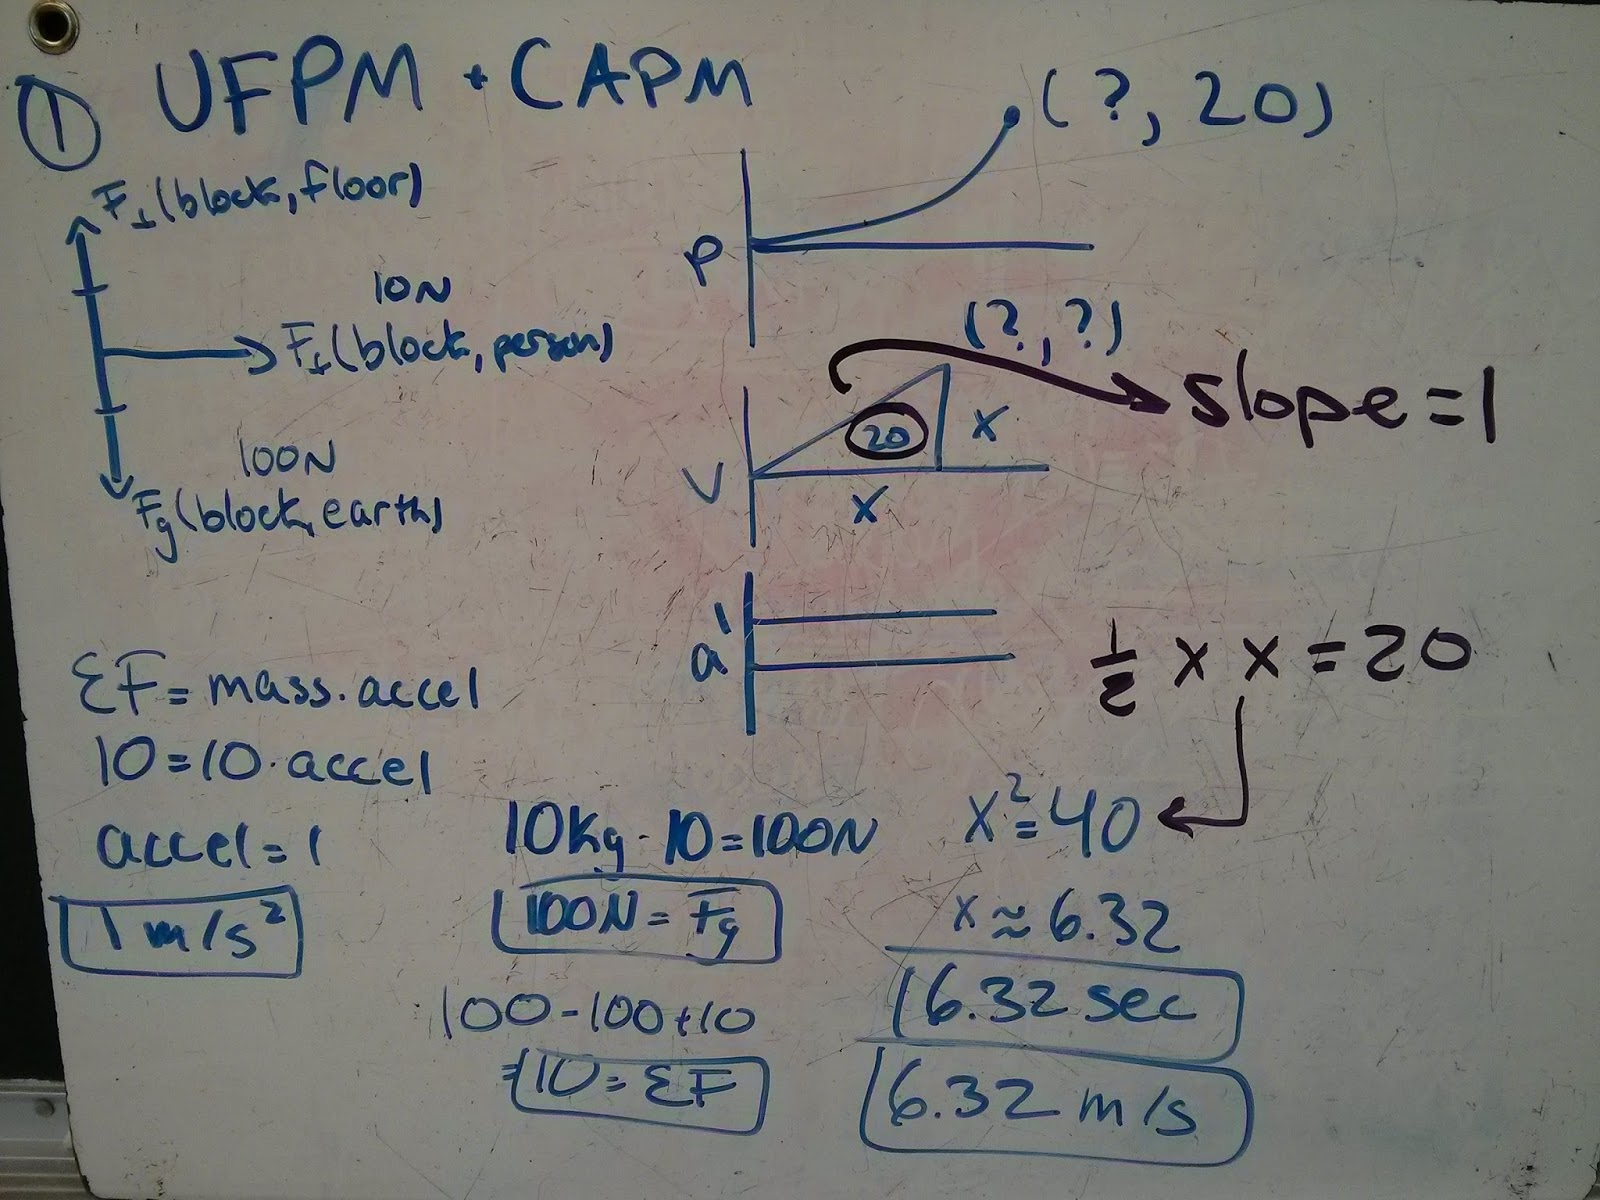 ① UFPM + CAPM
F⊥(block, floor)
10N
F⊥(block, person)
100N
Fg(block, earth)
ΣF = mass · accel
10 = 10 · accel
accel = 1
1 m/s²
10kg · 10 = 100N
100N = Fg
100 - 100 + 10
= 10 = ΣF
(?, 20)
P
(?, ?)
slope = 1
20
x
V
x
1
a
1/2 x x = 20
x² = 40
x ≈ 6.32
6.32 sec
6.32 m/s